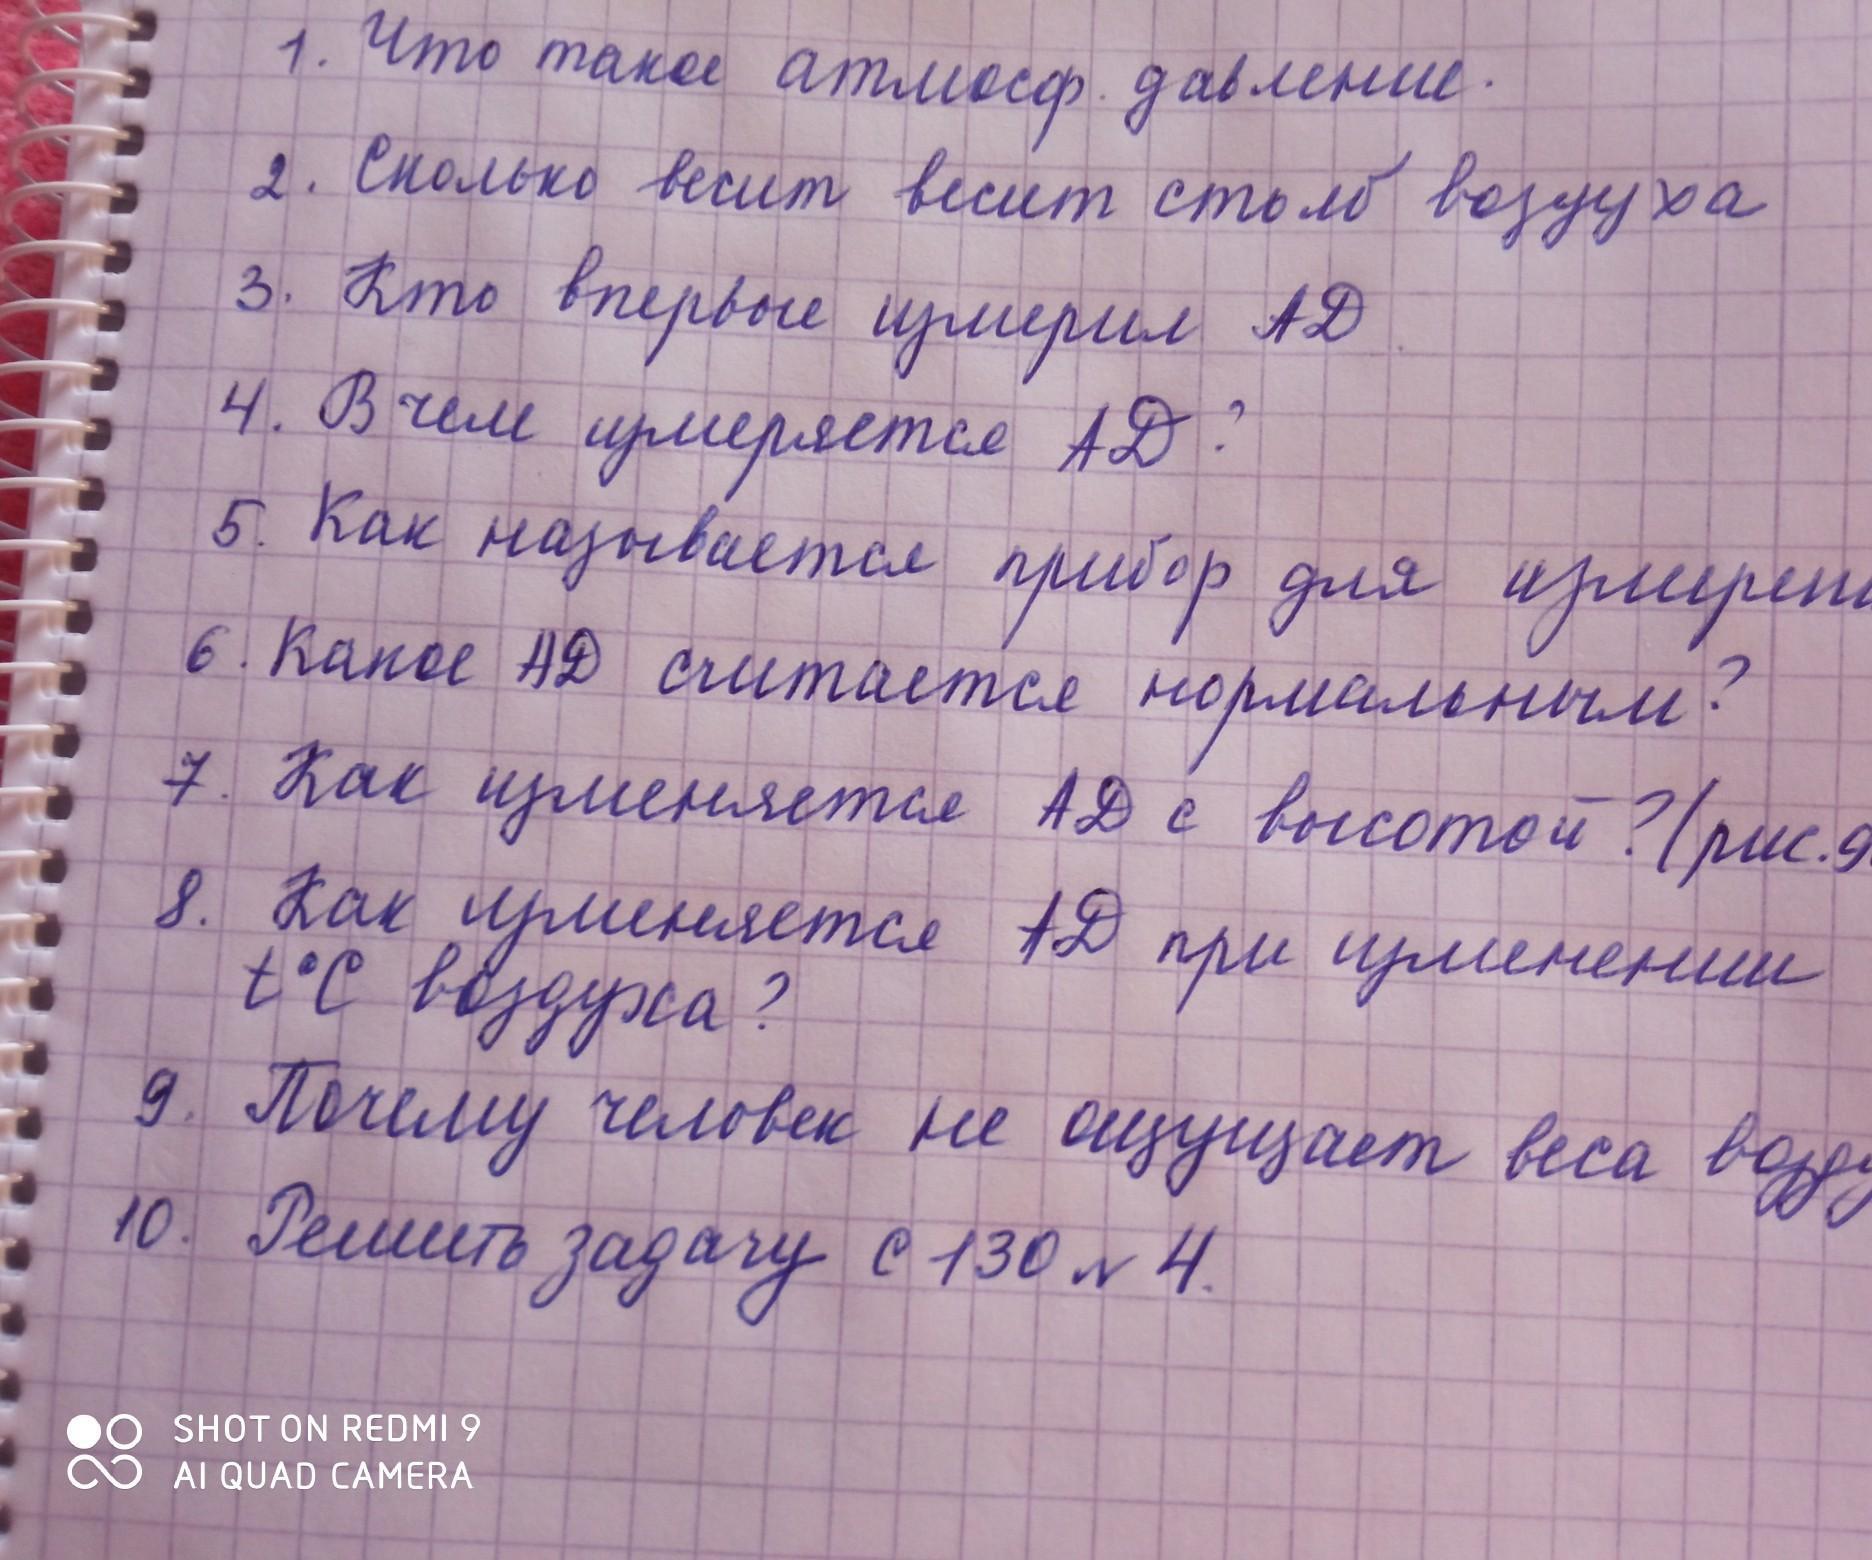 1. Что такое атмосф. давление.
2. Сколько весит весит столб воздуха
3. Кто впервые измерил АД
4. В чем измеряется АД?
5. Как называется прибор для
6. Какое АД считается нормальным?
7. Как изменяется АД с высотой? (рис.
8. Как изменяется АД при изменении
t°C воздуха?
9. Почему человек не ощущает веса
10. Решить задачу с 130 № 4.
SHOT ON REDMI 9
AI QUAD CAMERA